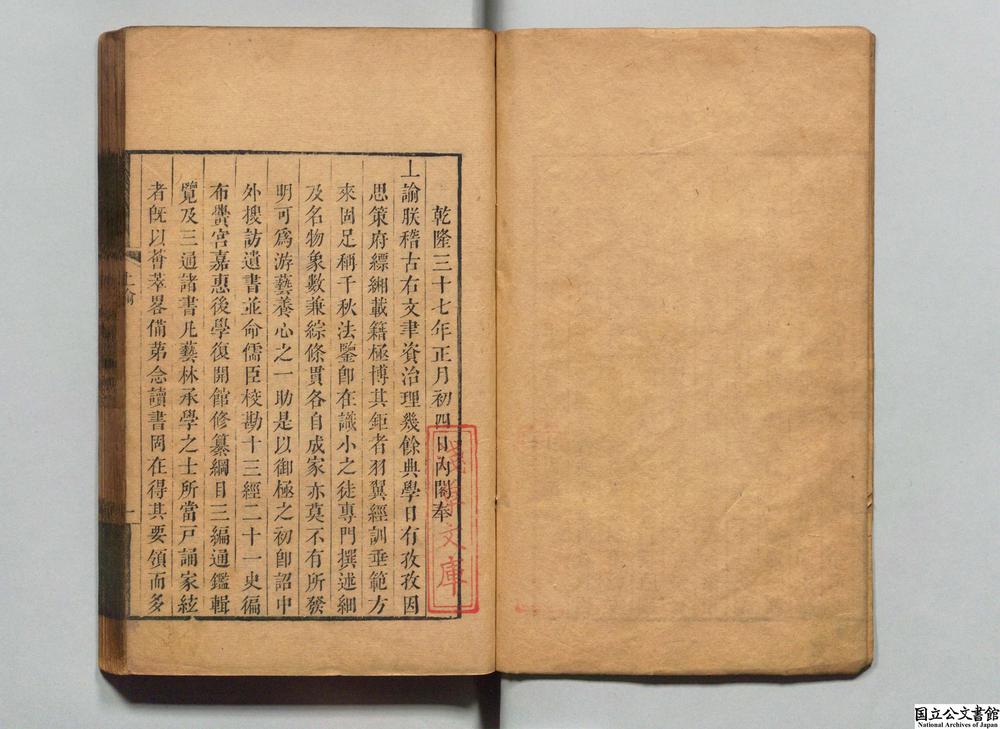 乾隆三十七年正月初四日內閣奉
上諭朕稽古右文聿資治理幾餘典學日有孜孜因
思策府縹緗載籍極博其鉅者羽翼經訓垂範方
來固足稱千秋法鑒卽在識小之徒專門撰述細
及名物象數兼綜條貫各自成家亦莫不有所發
明可爲游藝養心之一助是以御極之初卽詔中
外搜訪遺書並命儒臣校勘十三經二十一史徧
布黌宮嘉惠後學復開館修纂綱目三編通鑑輯
覽及三通諸書凡藝林承學之士所當戸誦家絃
者旣以薈萃畧備第念讀書固在得其要領而多
上諭
一
文庫
国立公文書館
National Archives of Japan